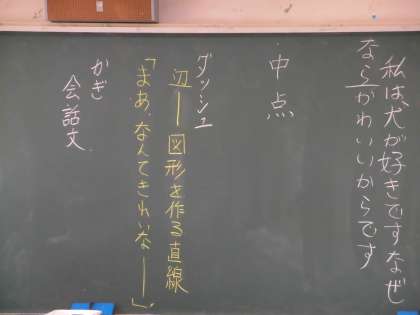 私は、犬が好きですなぜ
ならーかわいいからです
中点
ダッシュ
辺ー図形を作る直線
「まあ、なんてきれいなー」
かぎ
会話文